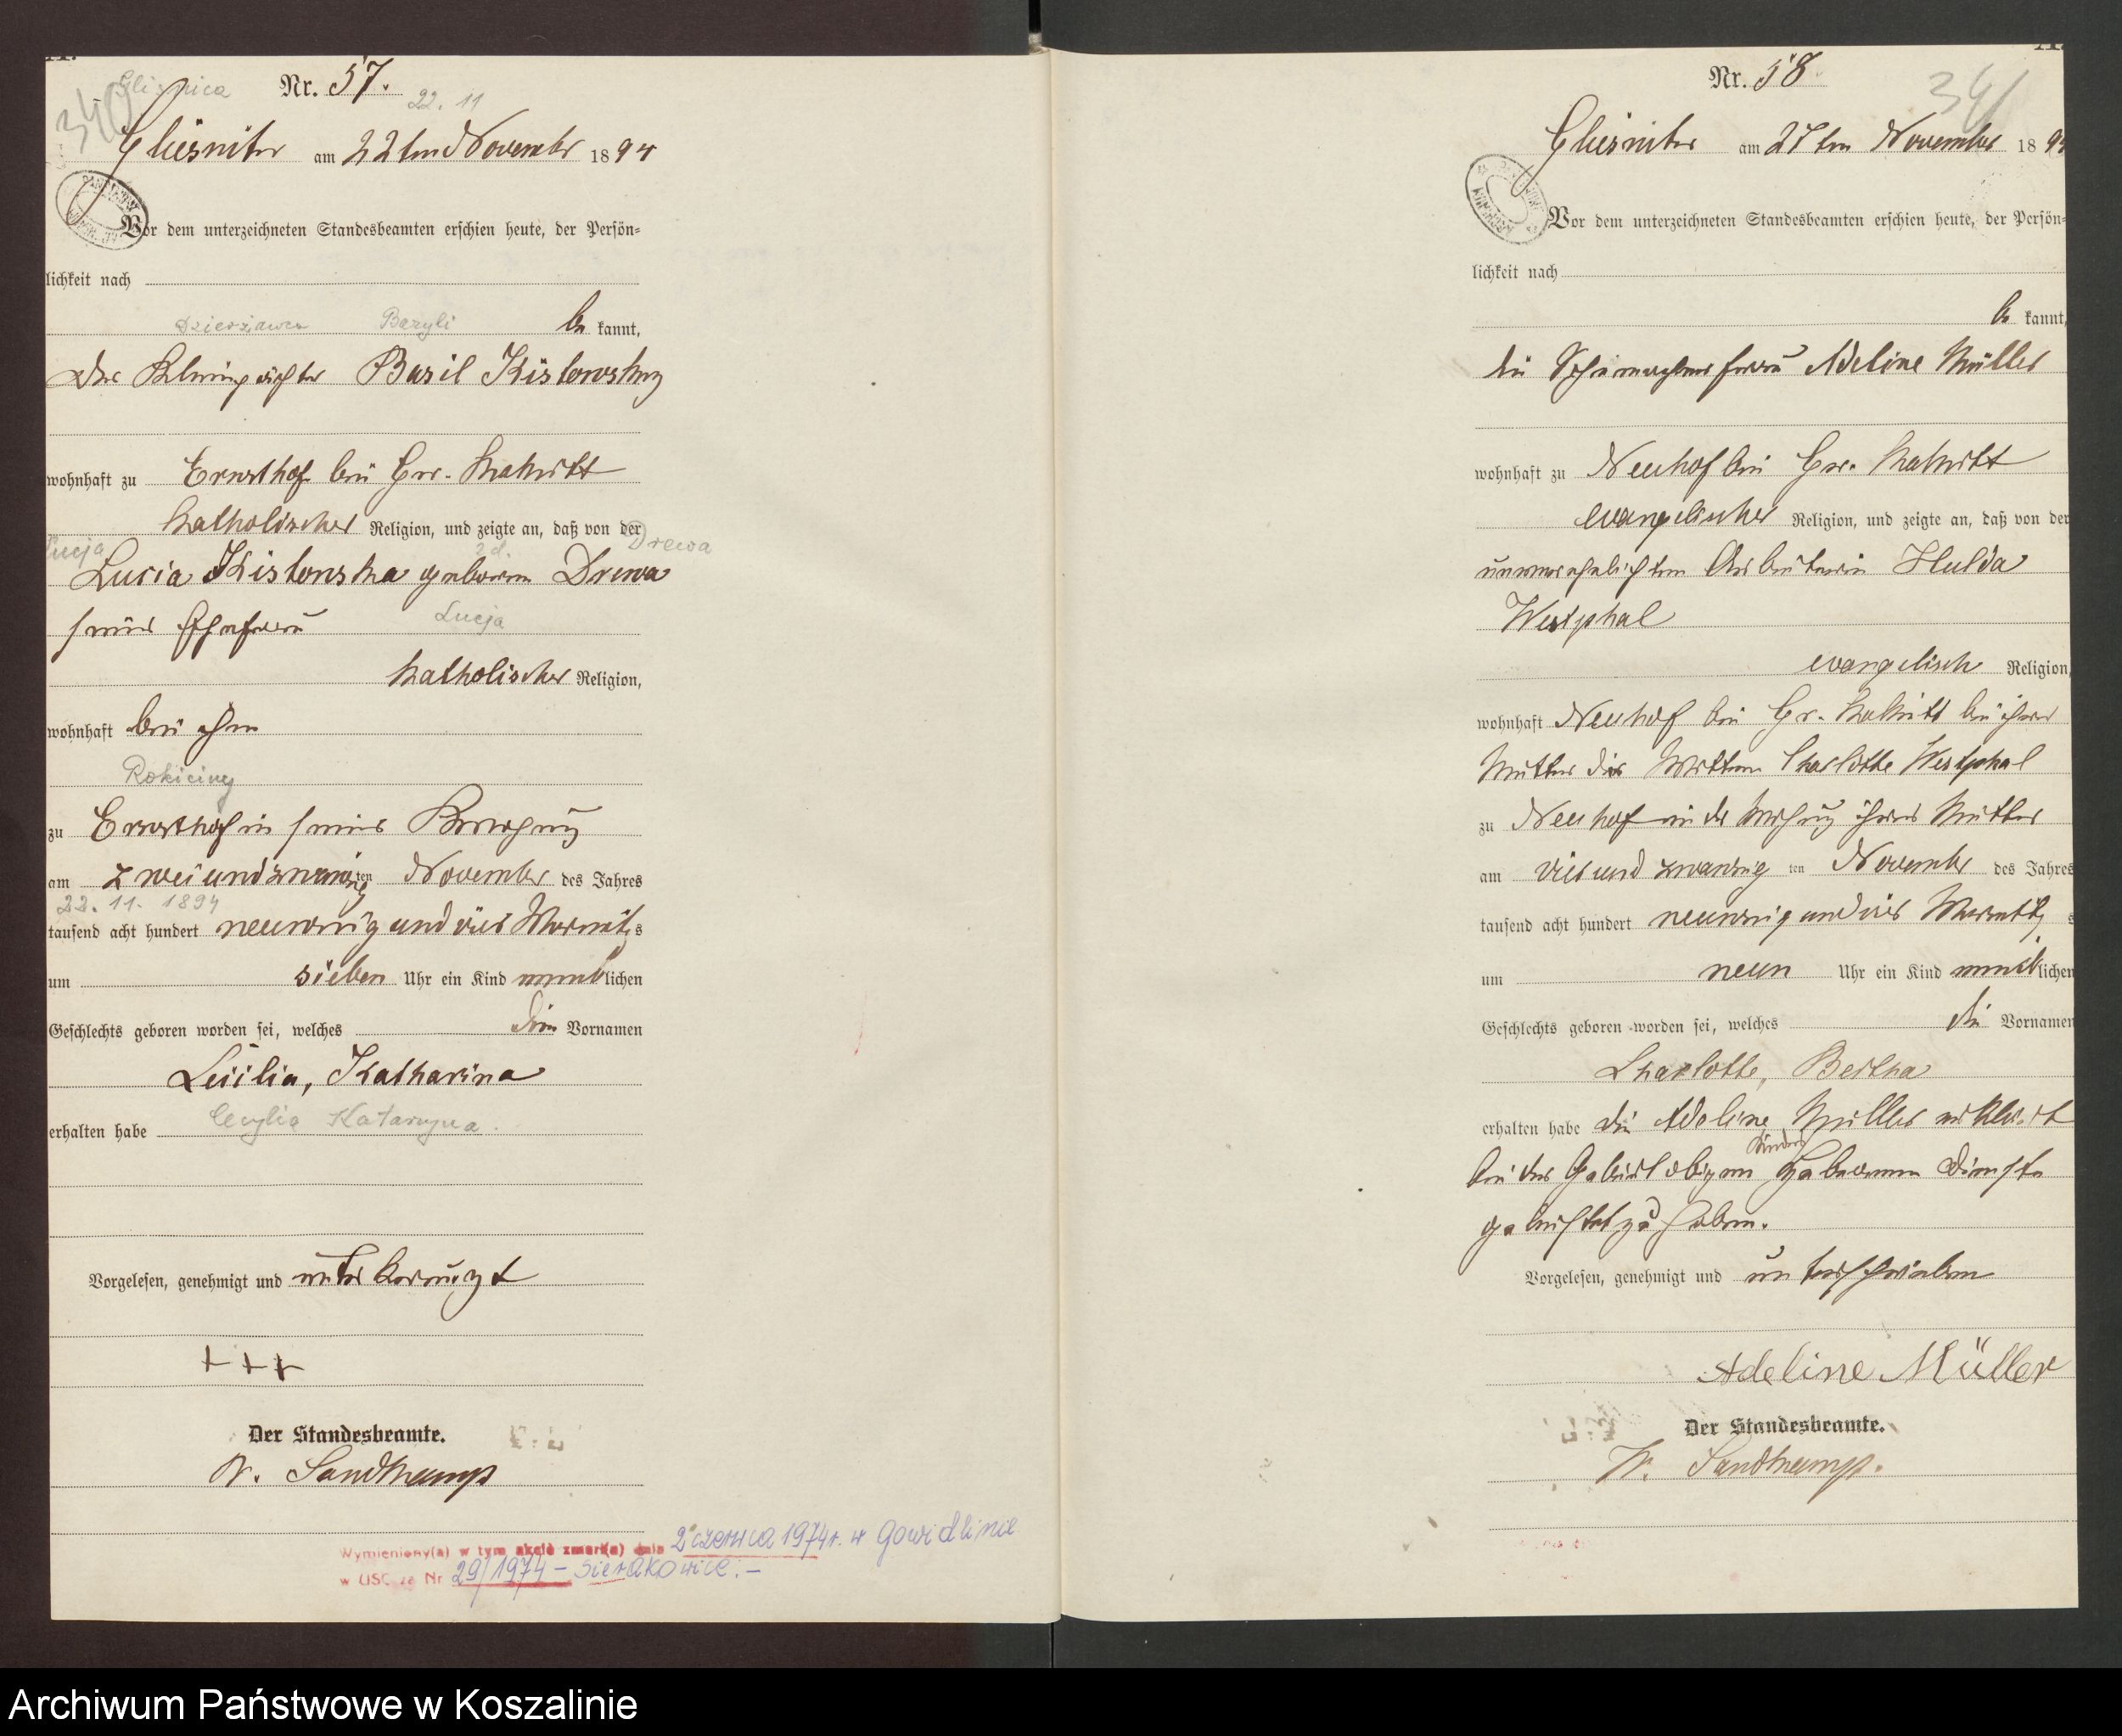 Glisnica Nr. 57.
340 22. 11
Gliesnitz am 22ten November 1894
Vor dem unterzeichneten Standesbeamten erschien heute, der Persön-
lichkeit nach
Dzierżawca Bazyli be kannt,
der Basil Kistowsky
wohnhaft zu Ernsthof bei Gr.
katholischer Religion, und zeigte an, daß von der
Lucja zd. Drewa
Lucia Kistowska geborene Drewa
seiner Ehefrau Lucja
katholischer Religion,
wohnhaft bei ihm
Rokiciny
zu Ernsthof in seiner
am zweiundzwanzig ten November des Jahres
22. 11. 1894
tausend acht hundert neunzig und vier Vormittags
um sieben Uhr ein Kind weiblichen
Geschlechts geboren worden sei, welches den Vornamen
Cecilia, Katharina
erhalten habe Cecylia Katarzyna.
Vorgelesen, genehmigt und unterkreuzt
+++
Der Standesbeamte.
W. Sandkamp
Wymieniony(a) w tym akcie zmarł(a) dnia 2 czerwca 1974 r. w Gowidlinie
w USC za Nr 29/1974 – Sierakowice. –
Nr. 58
341
Gliesnitz am 27ten November 1894
Vor dem unterzeichneten Standesbeamten erschien heute, der Persön-
lichkeit nach
be kannt,
die Adeline Müller
wohnhaft zu Neuhof bei Gr.
evangelischer Religion, und zeigte an, daß von der
unverehelichten Arbeiterin Hulda
Westphal
evangelisch Religion,
wohnhaft Neuhof bei Gr. bei ihrer
Mutter der Wittwe Charlotte Westphal
zu Neuhof in der Wohnung ihrer Mutter
am vierundzwanzig ten November des Jahres
tausend acht hundert neunzig und vier Vormittags
um neun Uhr ein Kind weiblichen
Geschlechts geboren worden sei, welches die Vornamen
Charlotte, Bertha
erhalten habe die Adeline Müller erklärt
bei der Geburt obigen Kindes Hebammen Dienste
geleistet zu haben.
Vorgelesen, genehmigt und unterschrieben
Adeline Müller
Der Standesbeamte.
W. Sandkamp.
Archiwum Państwowe w Koszalinie